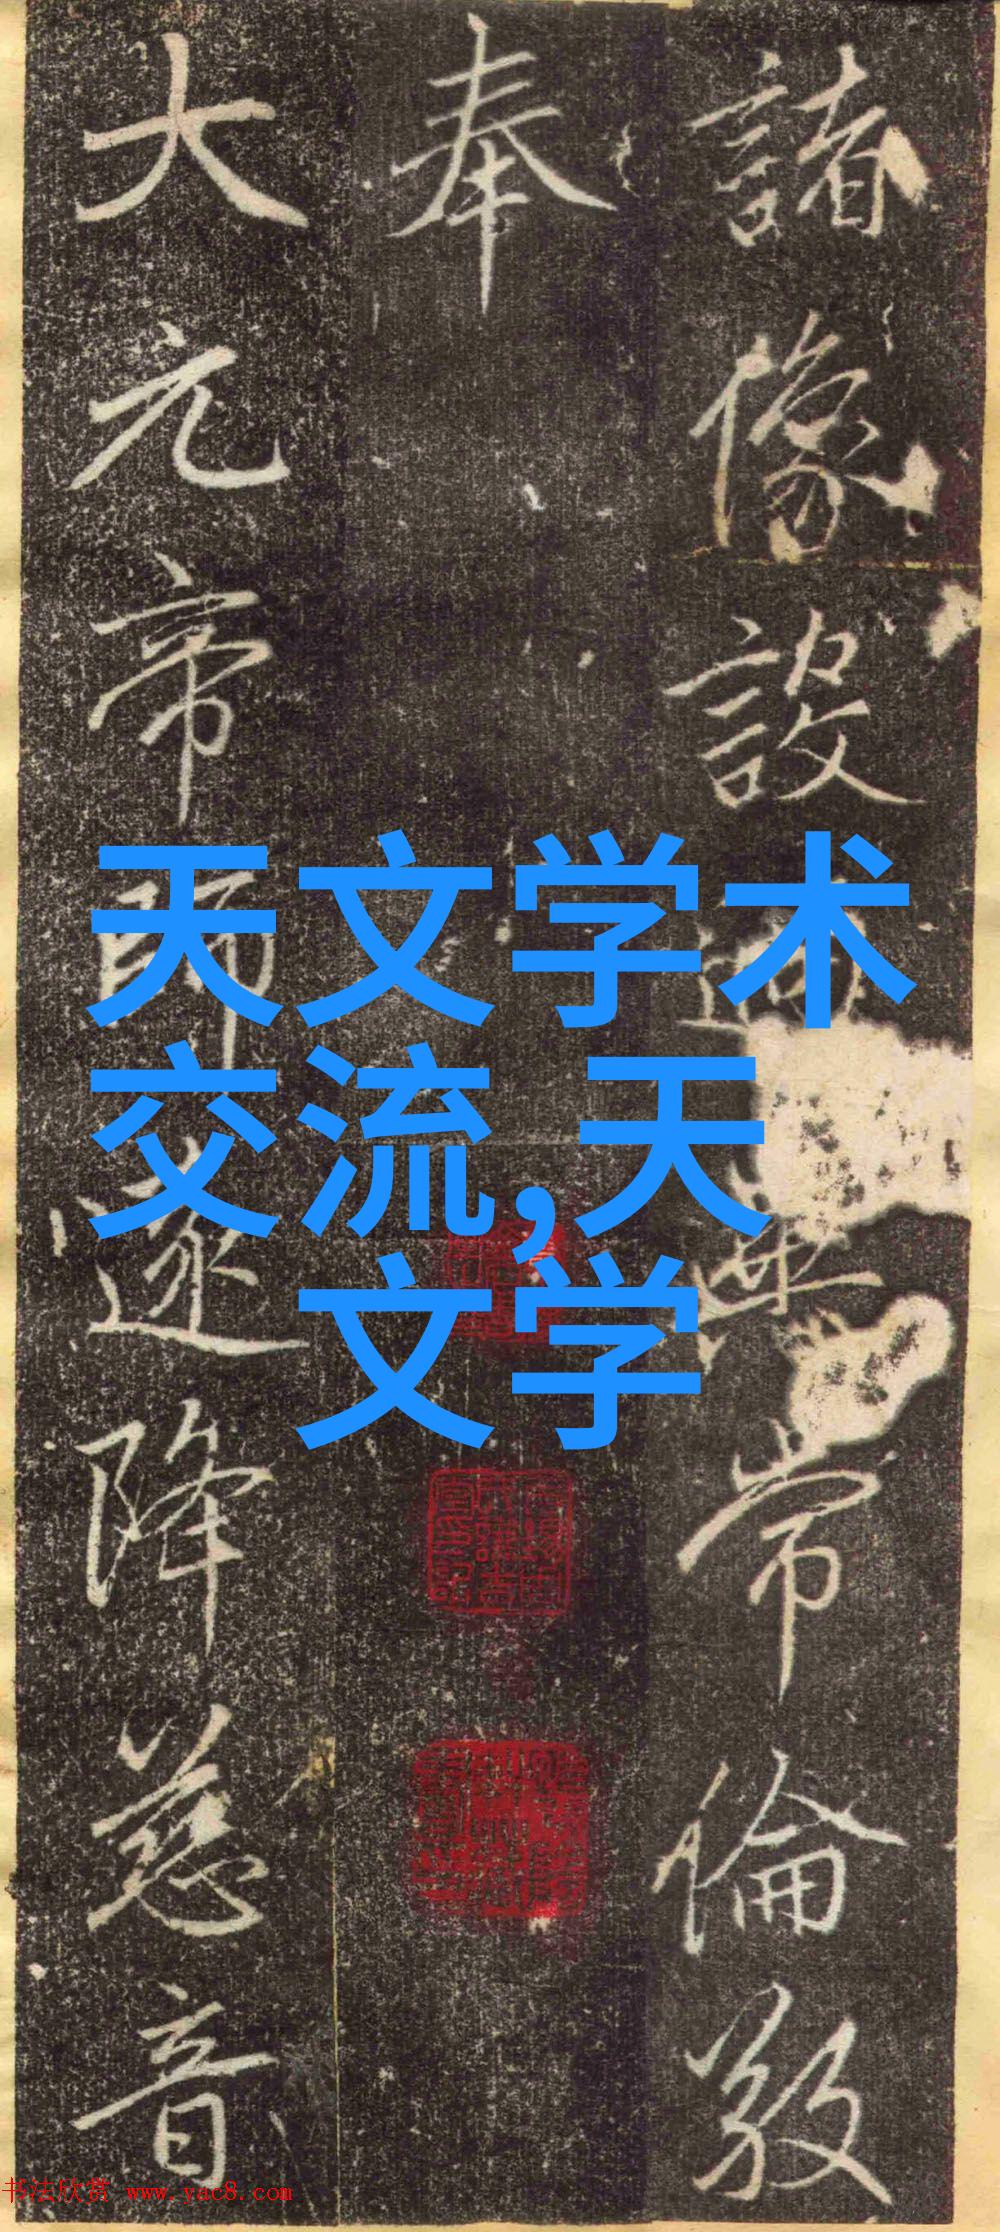 諸像設常倫
奉
大元帝師遂降慈音
天文学术
交流,天
文学
书法欣赏 www.yac8.com